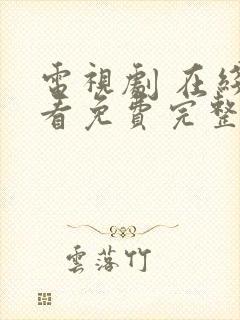 電視劇 在綫
看免費完整
雲落竹